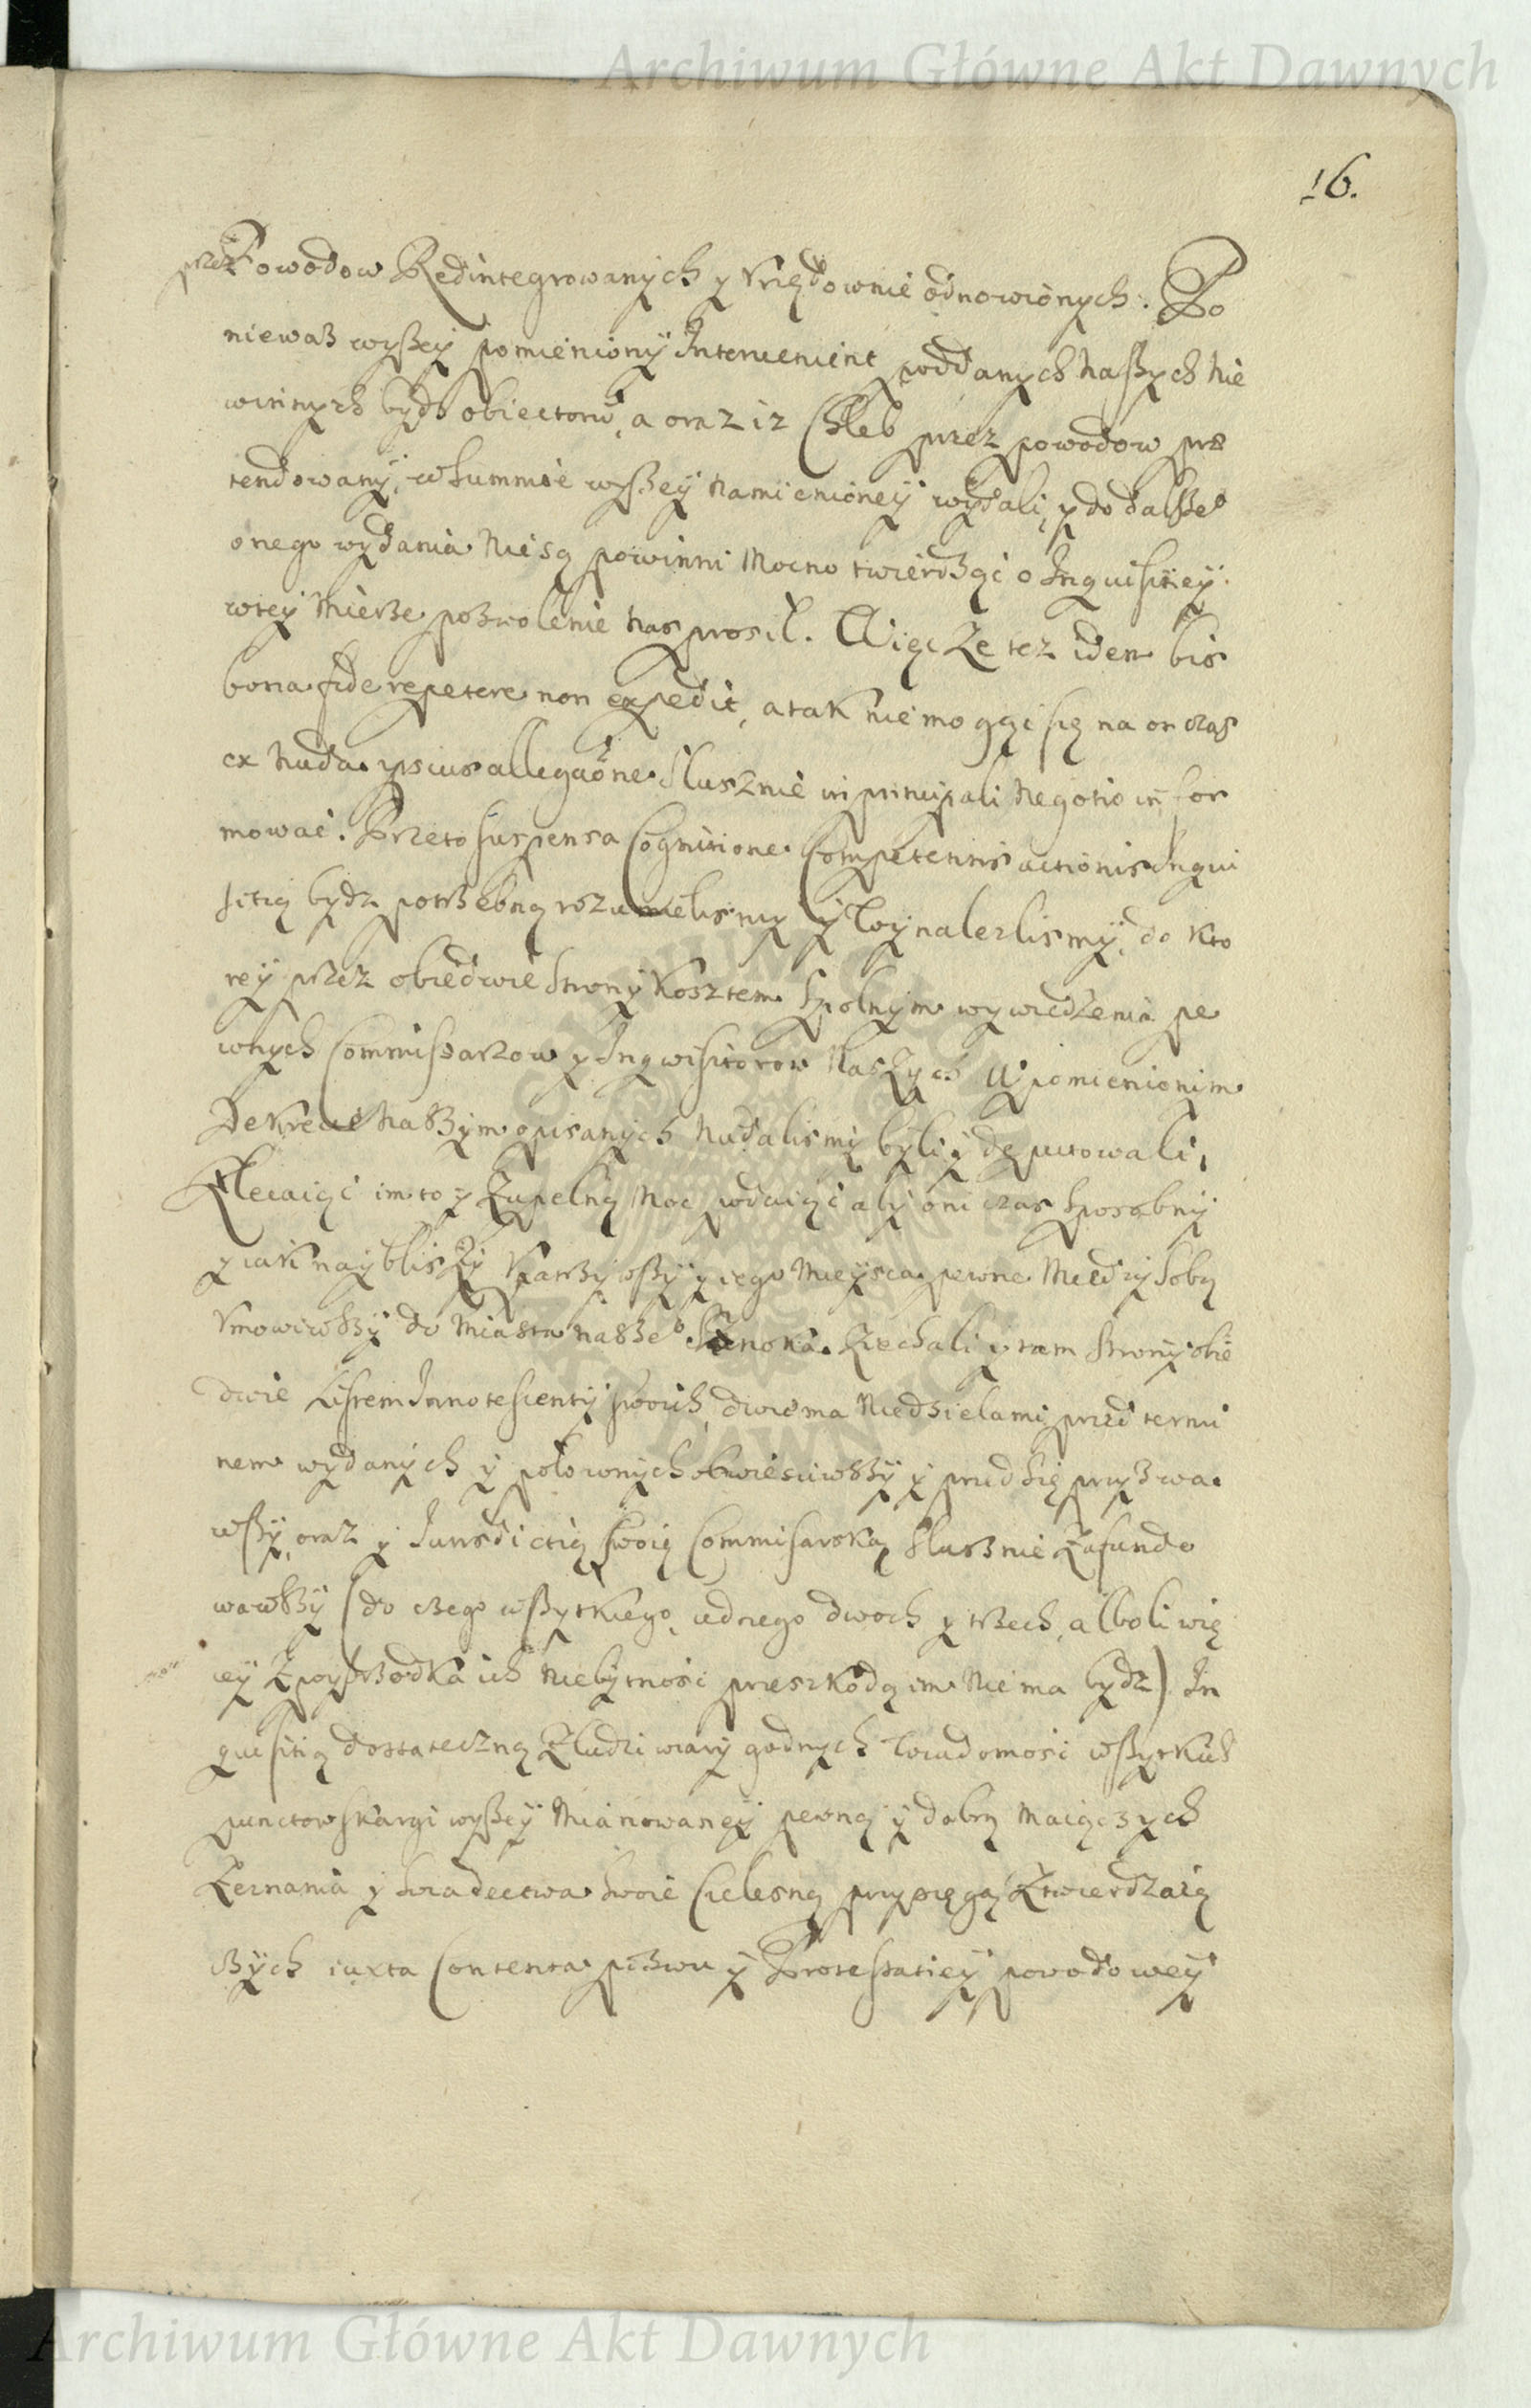 Archiwum Główne Akt Dawnych
16.
przez Powodow Redintegrowanych y Vrzędownie odnowionych. Po
niewasz wyszey pomieniony Interuenient poddanych naszych nie
winnych bydz obiectorũ, a oraz iz Chleb przez powodow præ
tendowany, w summie wyszey namienioney wydali, y do dalsze⁰
onego wydania nie są powinni mocno twierdząc o Inquisitiey
w tey mierze pozwolenie nas prosił. Więc ze tez idem bis
bona fide repetere non expedit, a tak nie mogąc się na on czas
ex nuda ipsius allegaõne słusznie in principali negotio infor
mowac. Przeto suspensa Cognitione Competentis actionis Inqui
sitią bydz potrzebną rozumielismy y wynalezlismy, do kto
rey przez obiedwie strony kosztem spolnym wywiedzenia pe
wnych Commissarzow y Inqwisitorow naszych w pomienionim
Dekrecie naszym opisanych nadalismy byli y deputowali,
Zlecaiąc im to y zupełną moc podaiąc aby oni czas sposobny
y iak nayblizszy vpatrzywszy y iego mieysca pewne miedzy sobą
vmowiwszy do miasta nasze⁰ Sanoka ziechali y tam strony obie
dwie listem Innotescenty swoich, dwiema niedzielami przed termi
nem wydanych y położonych obwiesciwszy y przed się przyzwa
wszy, oraz y Iurisdictią swoię Commisarską słusznie zafundo
wawszy (do czego wszytkiego, iednego dwoch y trzech, alboli wię
cey z posrzodka ich niebytnosc przeszkodą im nie ma bydz) In
quisitią dostateczną z ludzi wiary godnych wiadomosc wszytkich
punctow skargi wyszey mianowaney pewną y dobrą maiączych
Zeznania y swiadectwa swoie cielesną przysięgą ztwierdzaią
czych iuxta Contenta pozwu y Protestatiey powodowey
Archiwum Główne Akt Dawnych